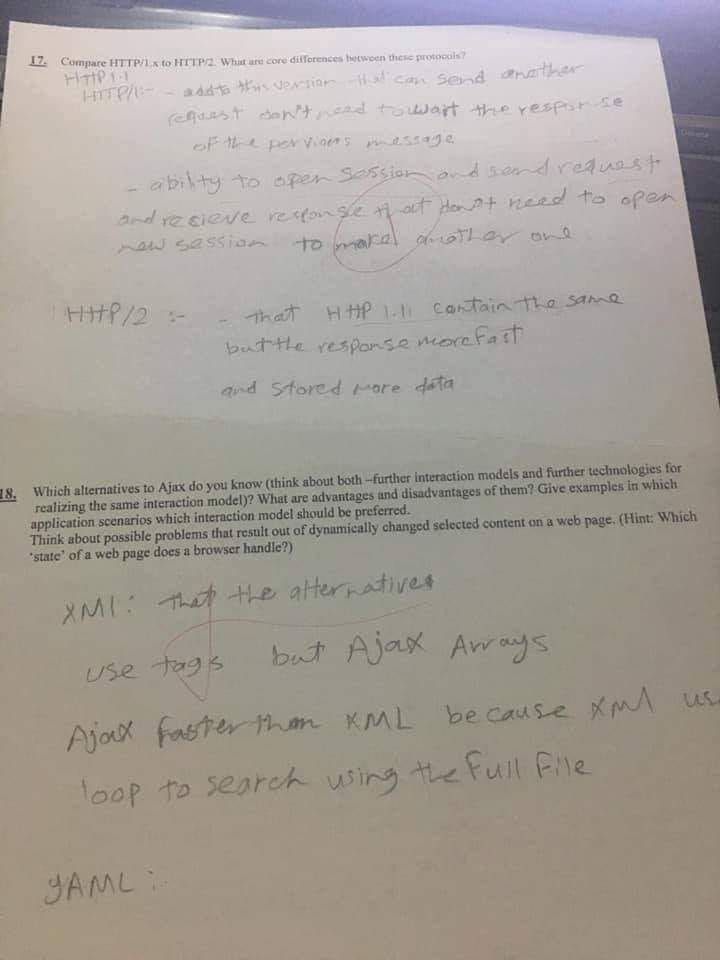 17. Compare HTTP/1.x to HTTP/2. What are core differences between these protocols?
HTTP1.1
HTTP/1:- - add to this version that can send another
request don't need to wait the response
of the pervioers message
- ability to open Session and send request
and recieve response that don't need to open
new session to make another one
HTTP/2 :- - that HTTP 1.1 contain the same
but the response more fast
and Stored more data
18. Which alternatives to Ajax do you know (think about both –further interaction models and further technologies for
realizing the same interaction model)? What are advantages and disadvantages of them? Give examples in which
application scenarios which interaction model should be preferred.
Think about possible problems that result out of dynamically changed selected content on a web page. (Hint: Which
'state' of a web page does a browser handle?)
XMl: that the alternatives
use tags but Ajax Arrays
Ajax faster than XML because xml us
loop to search using the full file
YAML :